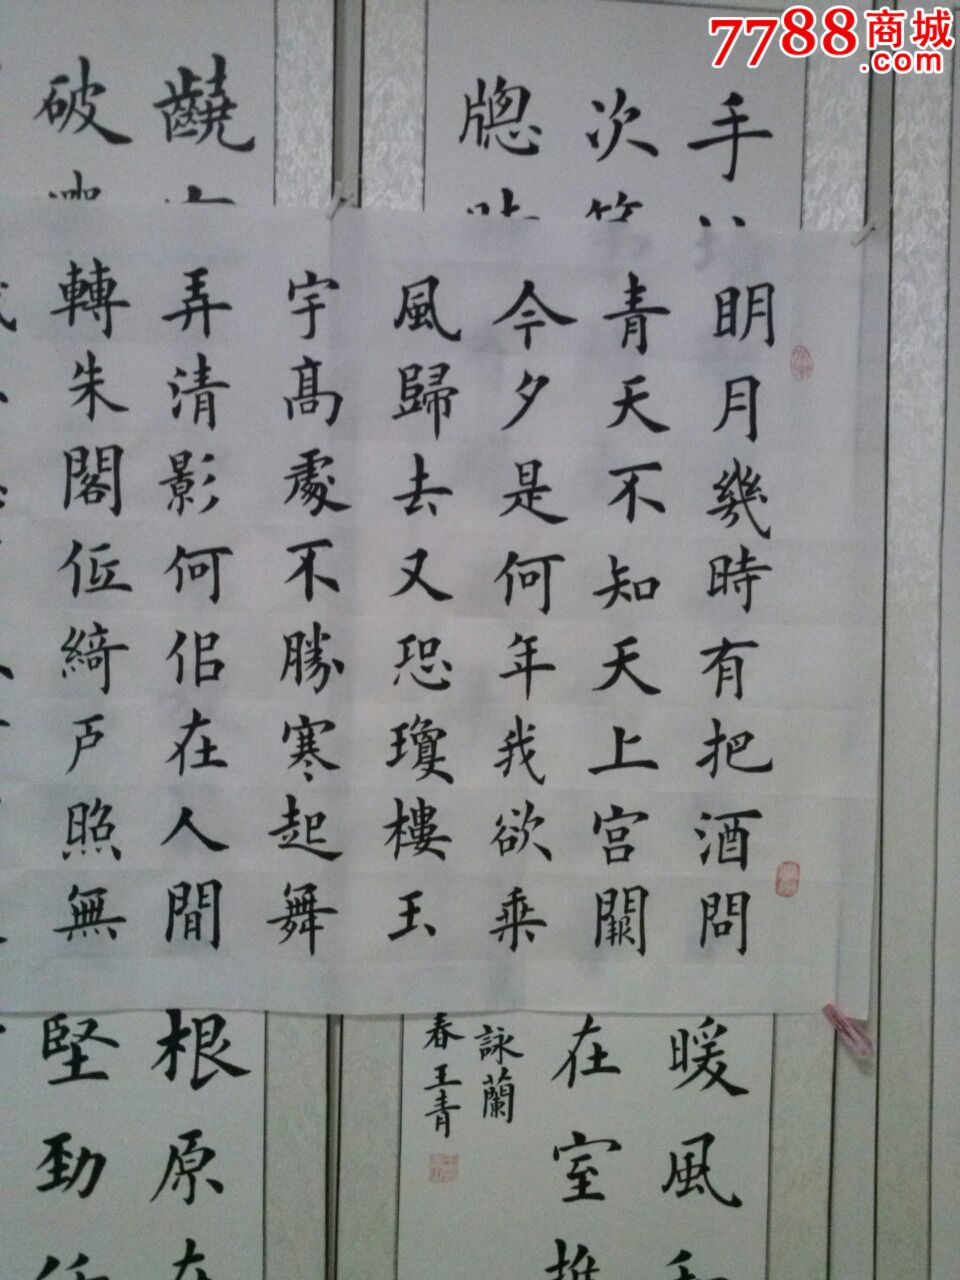 7788商城
.com
明月幾時有把酒問
青天不知天上宫闕
今夕是何年我欲乗
風歸去又恐瓊樓玉
宇高處不勝寒起舞
弄清影何佀在人間
轉朱閣低綺戶照無
手
暖風和
次
在室推
牕
詠蘭
春王青
齾
根原在
破
堅勁任